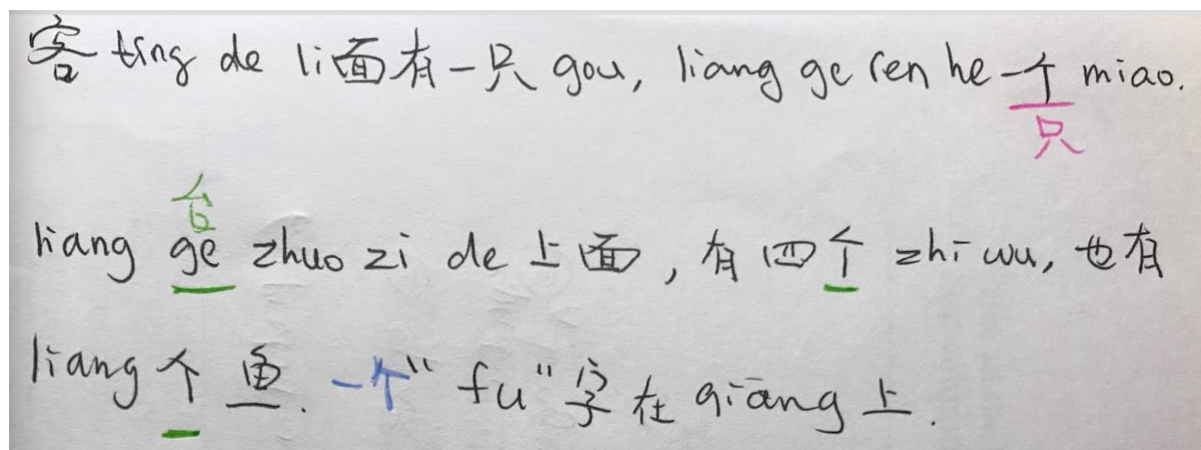 客 ting de li面有一只 gou, liang ge ren he 一个 miao.
只
台
liang ge zhuo zi de 上面, 有四个 zhi wu, 也有
liang 个 鱼. 一个 "fu" 字在 qiāng 上.